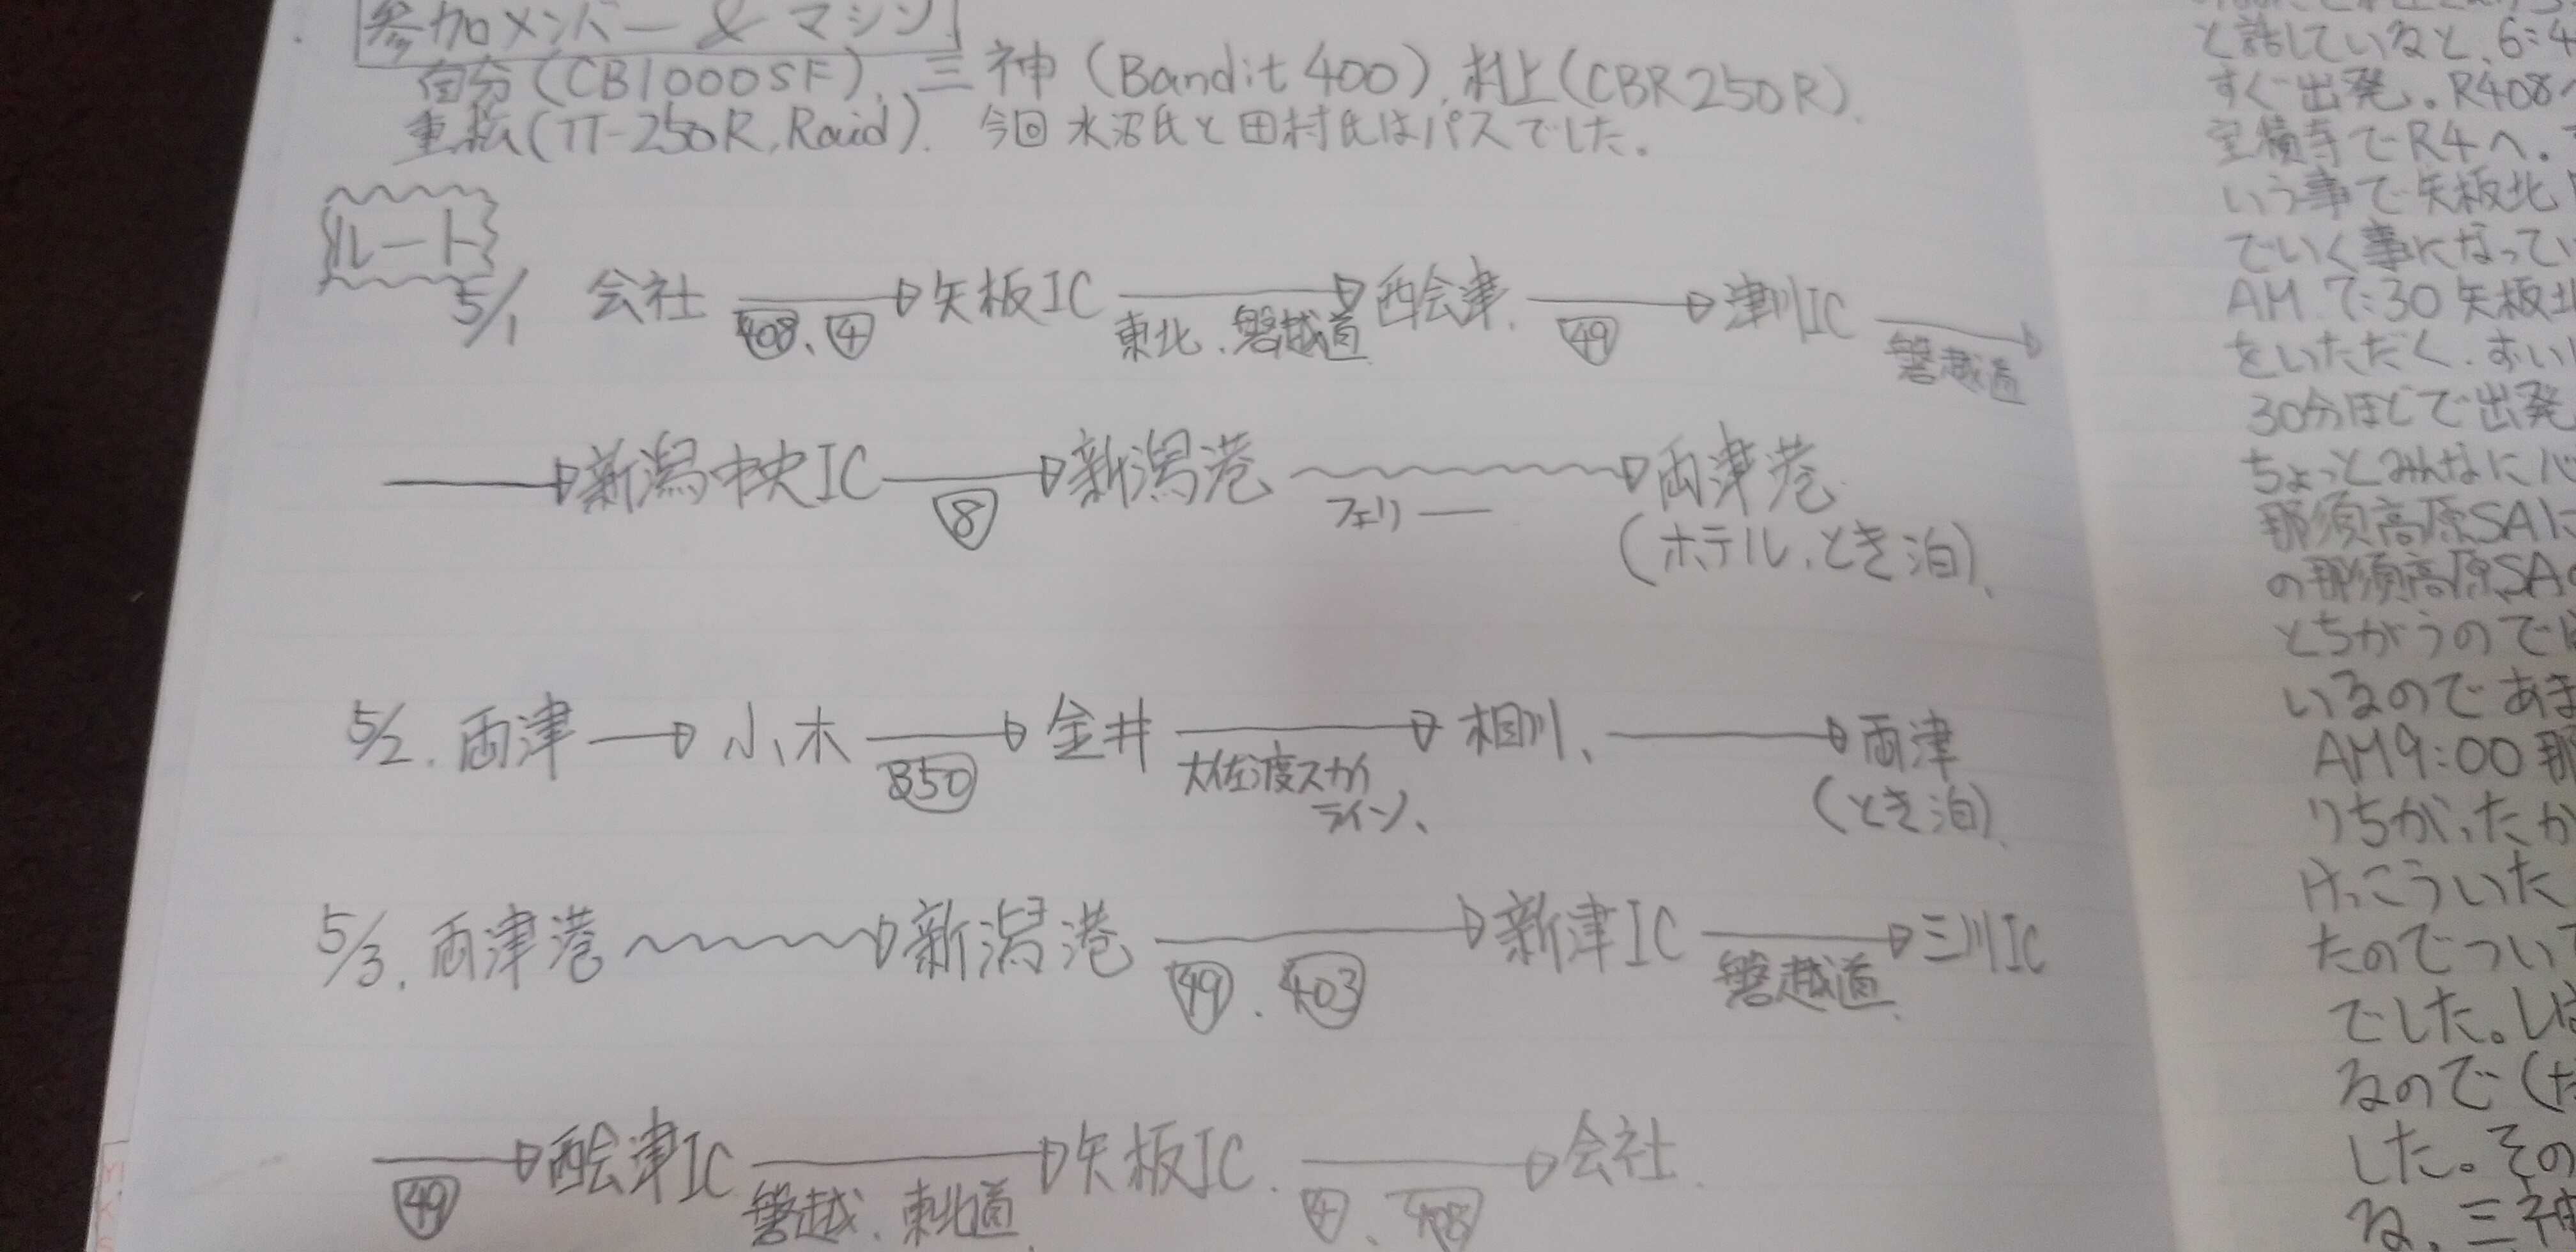 参加メンバー & マシン
自分(CB1000SF)、三神(Bandit 400)、村上(CBR250R)、
重転(TT-250R, Raid)、今回水沼氏と田村氏はパスでした。
ルート
5/1 会社 → 矢板IC → 西会津、→ 津川IC →
408、4 東北、磐越道 49 磐越道
→ 新潟中央IC → 新潟港 〜 両津港
8 フェリー
(ホテル、とき泊)、
5/2. 両津 → 小木 → 金井 → 相川、→ 両津
350 大佐渡スカイ
ライン、 (とき泊)
5/3. 両津港 〜 新潟港 → 新津IC → 三川IC
49、403 磐越道
→ 西会津IC → 矢板IC. → 会社.
49 磐越、東北道 4、408
と話していると、6:4
すぐ出発。R408へ
宝積寺でR4へ。
いう事で矢板北
でいく事になってい
AM 7:30 矢板北
をいただく、ずい
30分ほどで出発
ちょっとみんなに
那須高原SAに
の那須高原SA
とちがうので
いるのであま
AM9:00 那
りちがったか
けっこういた
たのでついて
でした。しば
なので(た
した。その
る、三神